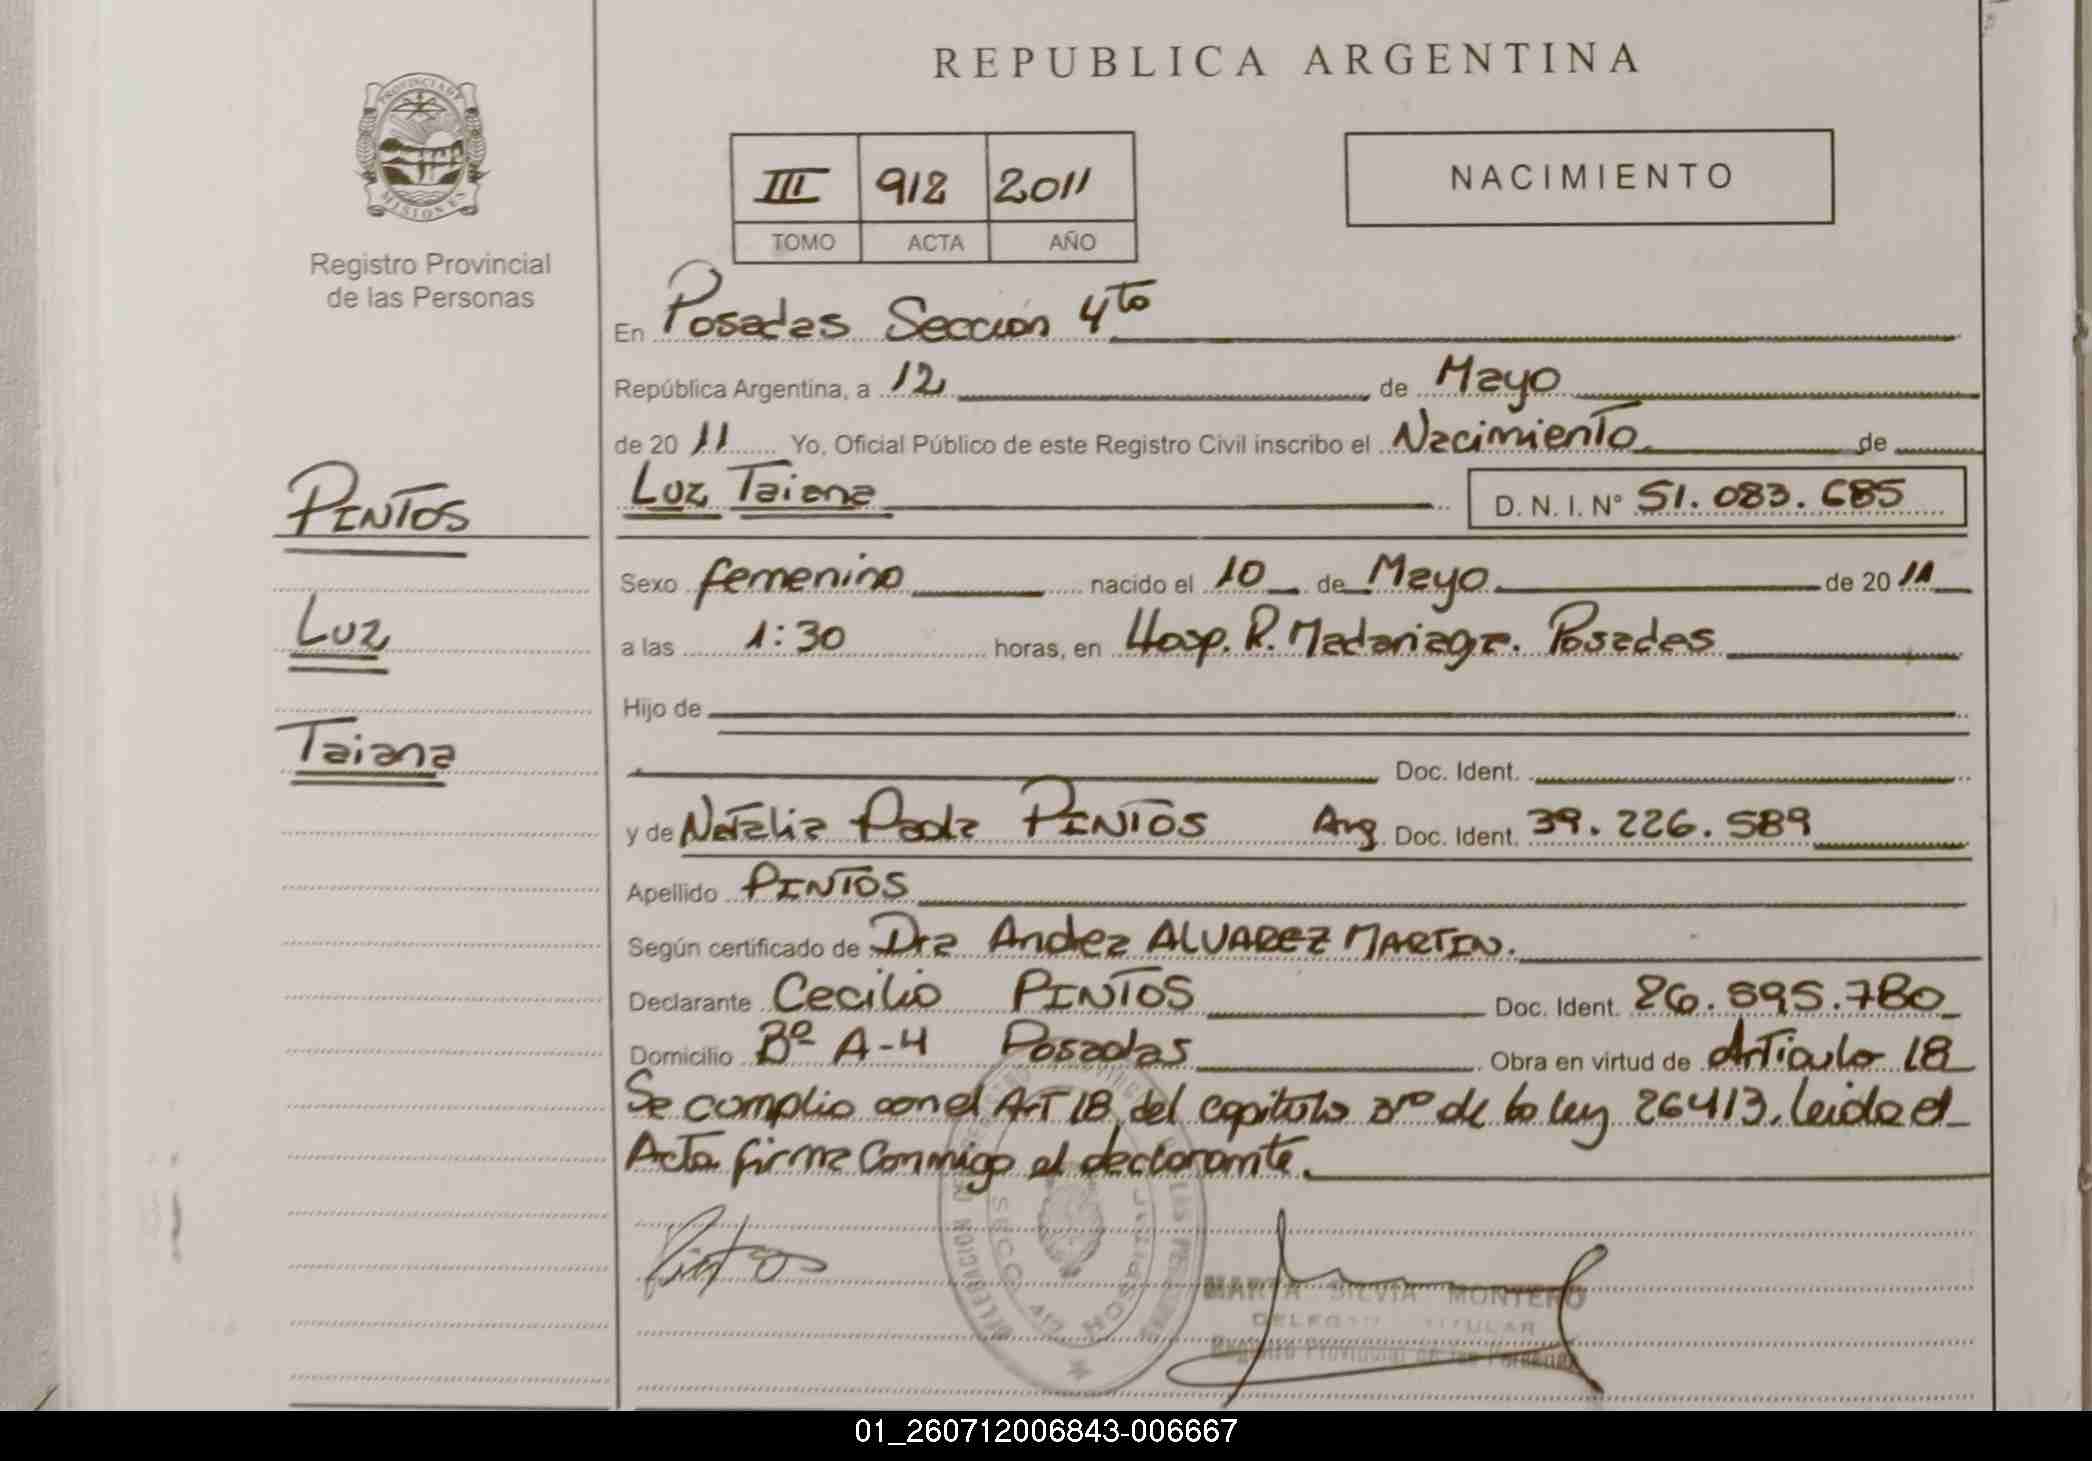 REPUBLICA ARGENTINA
PROVINCIA DE
MISIONES
Registro Provincial
de las Personas
III 912 2011
TOMO ACTA AÑO
NACIMIENTO
En Posadas Sección 4to
República Argentina, a 12 de Mayo
de 20 11 Yo, Oficial Público de este Registro Civil inscribo el Nacimiento de
PINTOS
Luz
Taiana
Luz Taiana D. N. I. N° 51.083.685
Sexo femenino nacido el 10 de Mayo de 20 11
a las 1:30 horas, en Hosp. R. Madariaga. Posadas
Hijo de
Doc. Ident.
y de Natalia Paola PINTOS Arg. Doc. Ident. 39.226.589
Apellido PINTOS
Según certificado de Dra Andrea ALVAREZ MARTIN.
Declarante Cecilio PINTOS Doc. Ident. 26.595.780
Domicilio Bº A-4 Posadas Obra en virtud de Articulo 18
Se complio con el ArT 18 del capitulo 3ro de la ley 26413, leida el
Acta firma Conmigo el declarante.
Pintos
MARTA SILVIA MONTERO
DELEGADA TITULAR
Registro Provincial de las Personas
01_260712006843-006667